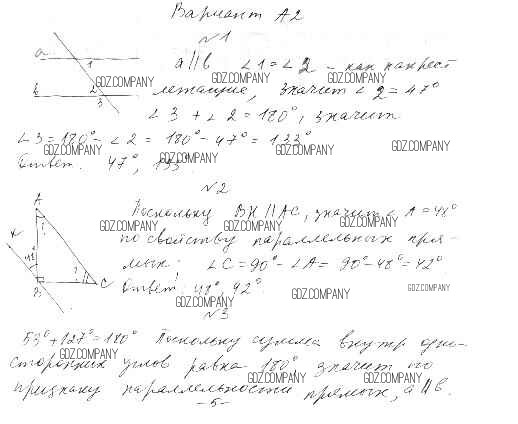 Вариант А2
№1
a
1
a || b ∠1 = ∠2 – как накрест
GDZ.COMPANY GDZ.COMPANY GDZ.COMPANY
b
2
3
лежащие, значит ∠2 = 47°
∠3 + ∠2 = 180°, значит
∠3 = 180° – ∠2 = 180° – 47° = 133°
GDZ.COMPANY GDZ.COMPANY GDZ.COMPANY
Ответ: 47°, 133°
GDZ.COMPANY
№2
A
?
Поскольку BK || AC, значит ∠A = 48°
GDZ.COMPANY GDZ.COMPANY GDZ.COMPANY
K
48°
по свойству параллельных пря-
мых. ∠C = 90° – ∠A = 90° – 48° = 42°
?
B
C
GDZ.COMPANY GDZ.COMPANY
Ответ: 48°, 42°.
GDZ.COMPANY GDZ.COMPANY
№3
53° + 127° = 180° Поскольку сумма внутр. одно-
GDZ.COMPANY
сторонних углов равна 180°, значит по
GDZ.COMPANY GDZ.COMPANY
признаку параллельности прямых, a || b.
-5-